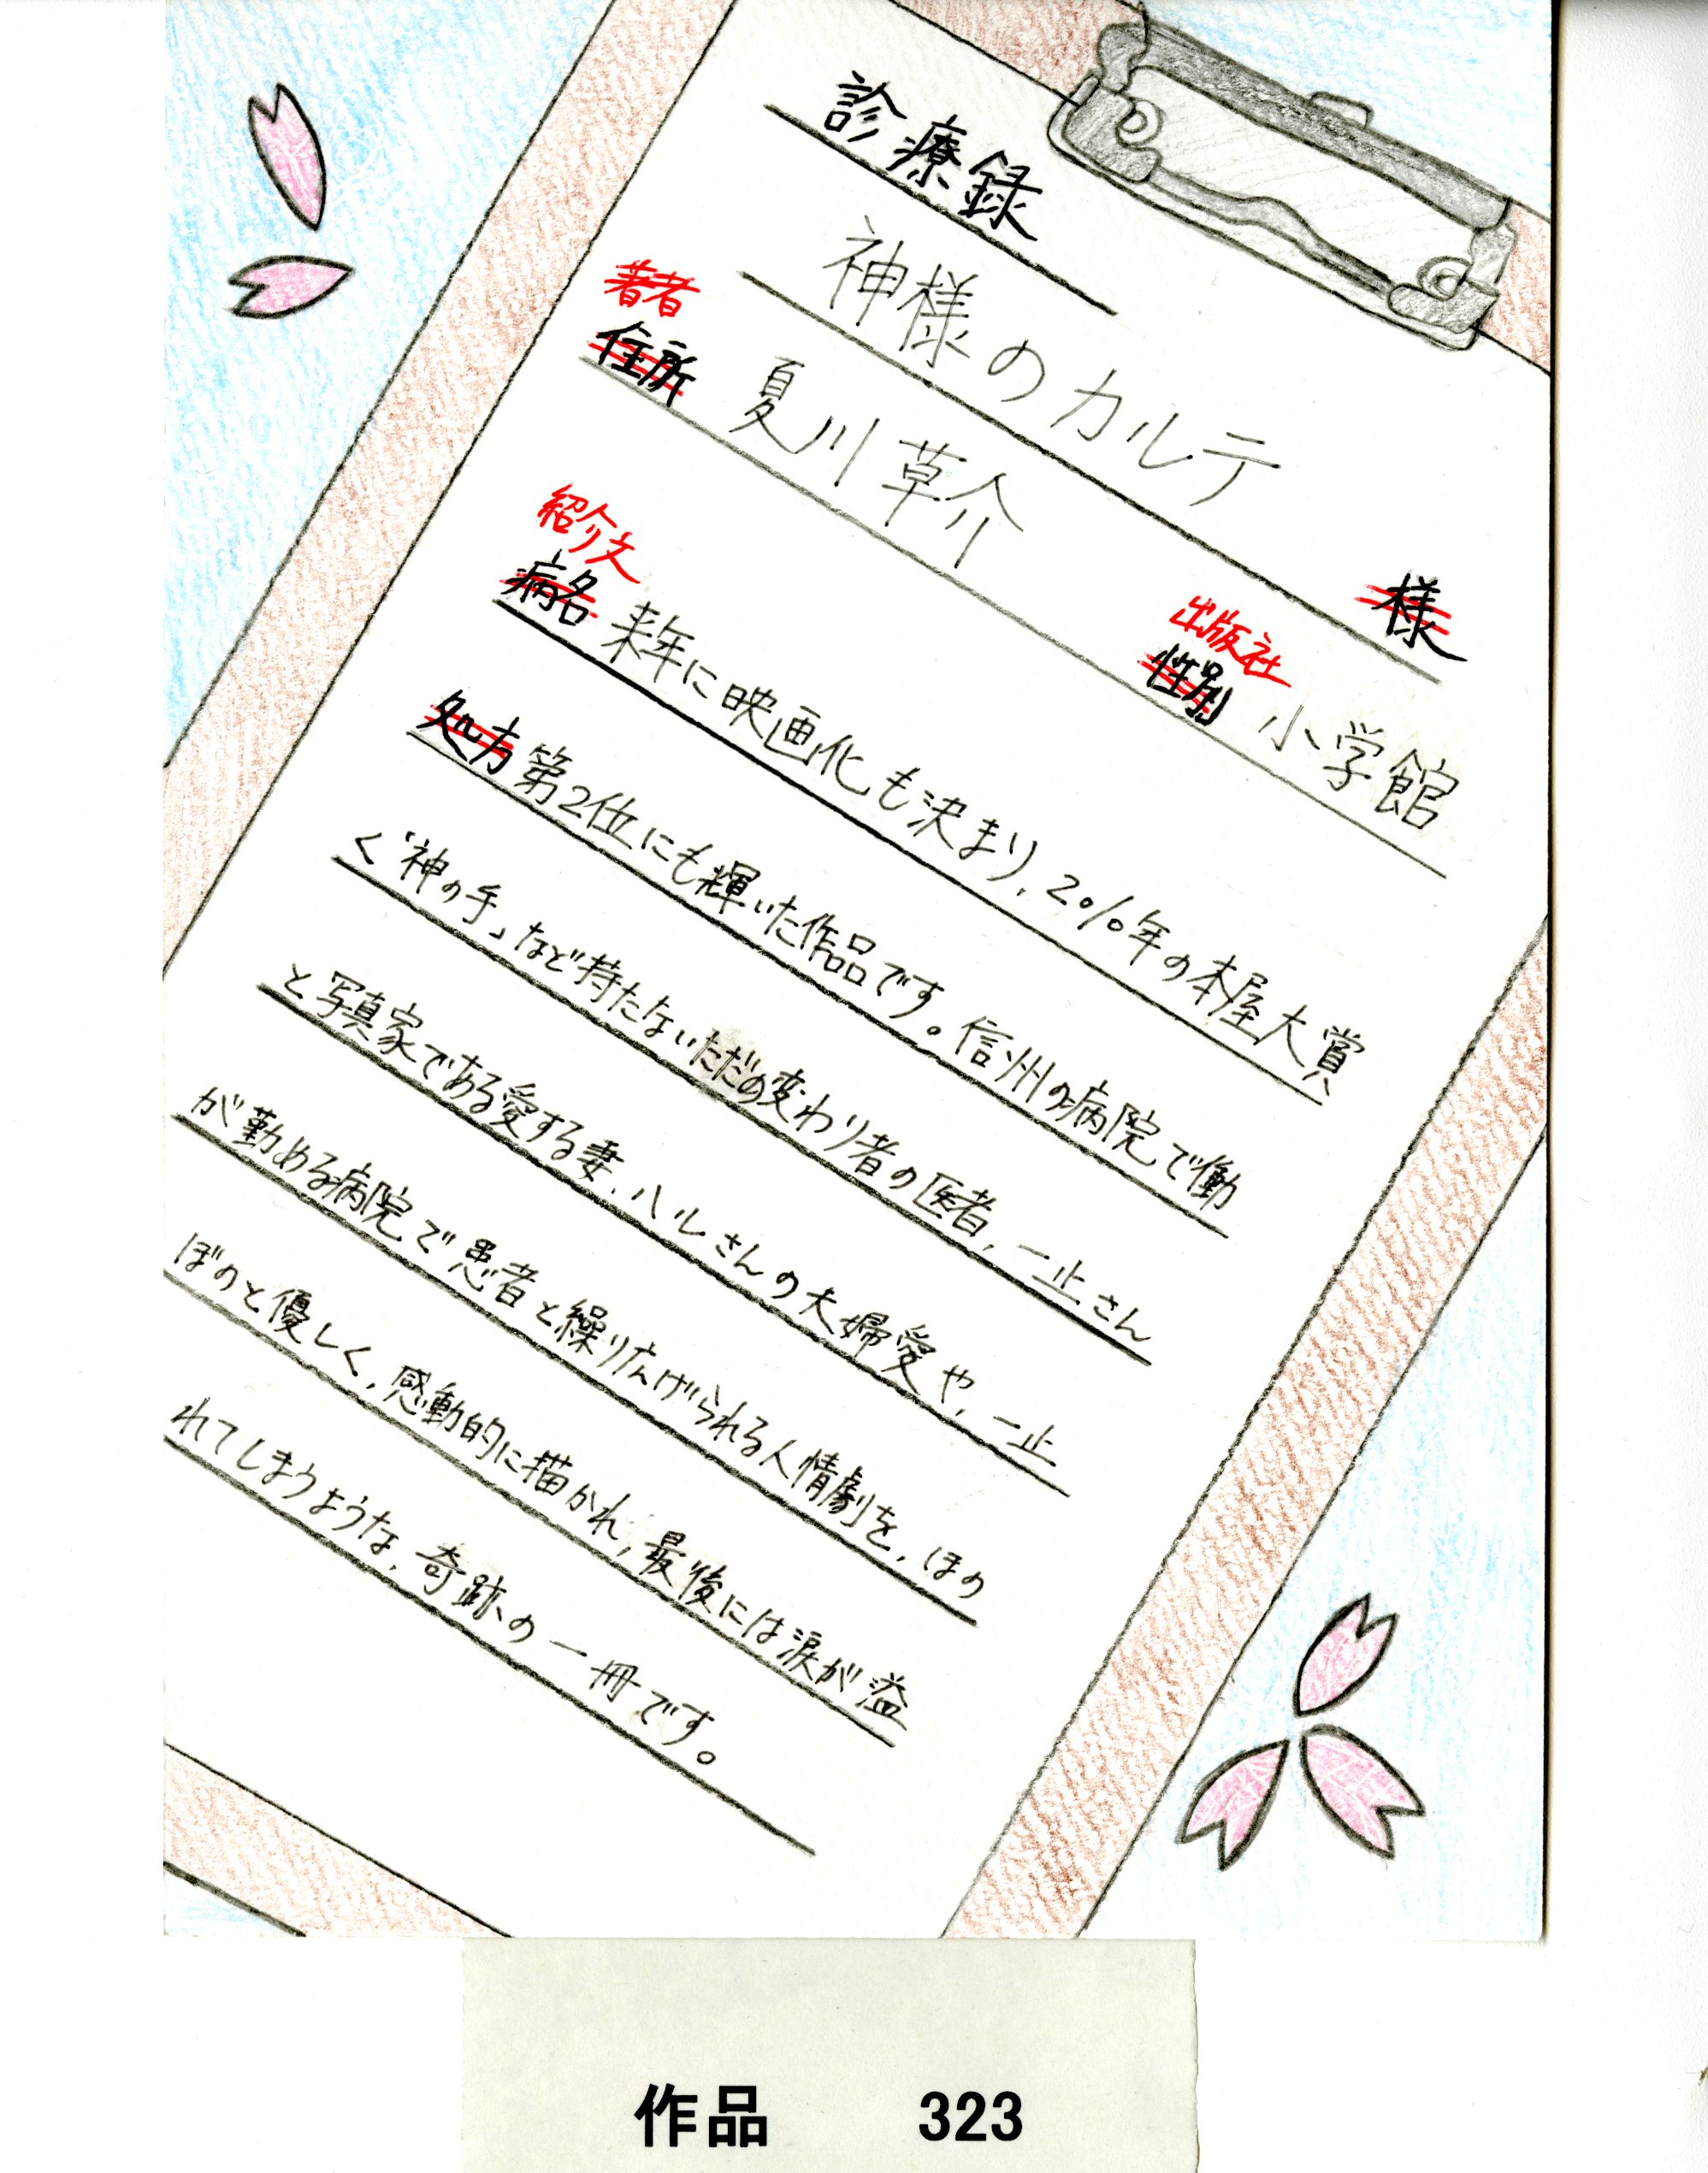 診療録
神様のカルテ 様
著者
住所 夏川草介
出版社
性別 小学館
紹介文
病名 来年に映画化も決まり、2010年の本屋大賞
処方 第2位にも輝いた作品です。信州の病院で働
く「神の手」など持たないただの変わり者の医者、一止さん
と写真家である愛する妻、ハルさんの夫婦愛や、一止
が勤める病院で患者と繰り広げられる人情劇を、ほの
ぼのと優しく、感動的に描かれ、最後には涙が溢
れてしまうような、奇跡の一冊です。
作品 323